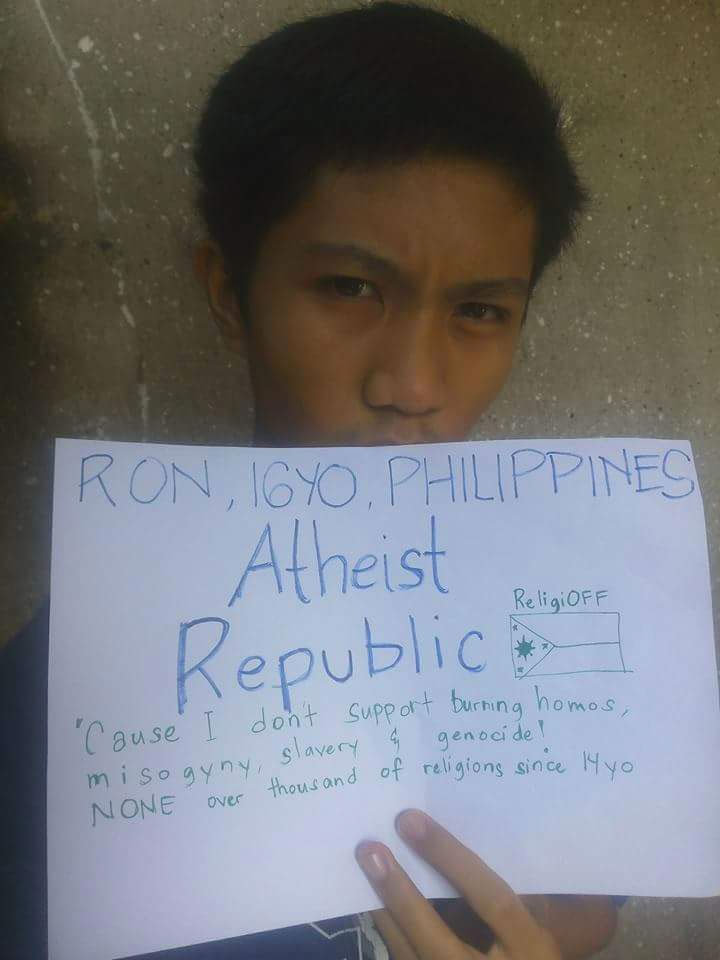 RON, 16YO, PHILIPPINES
Atheist
Republic
ReligiOFF
'Cause I don't support burning homos,
misogyny, slavery & genocide!
NONE over thousand of religions since 14yo